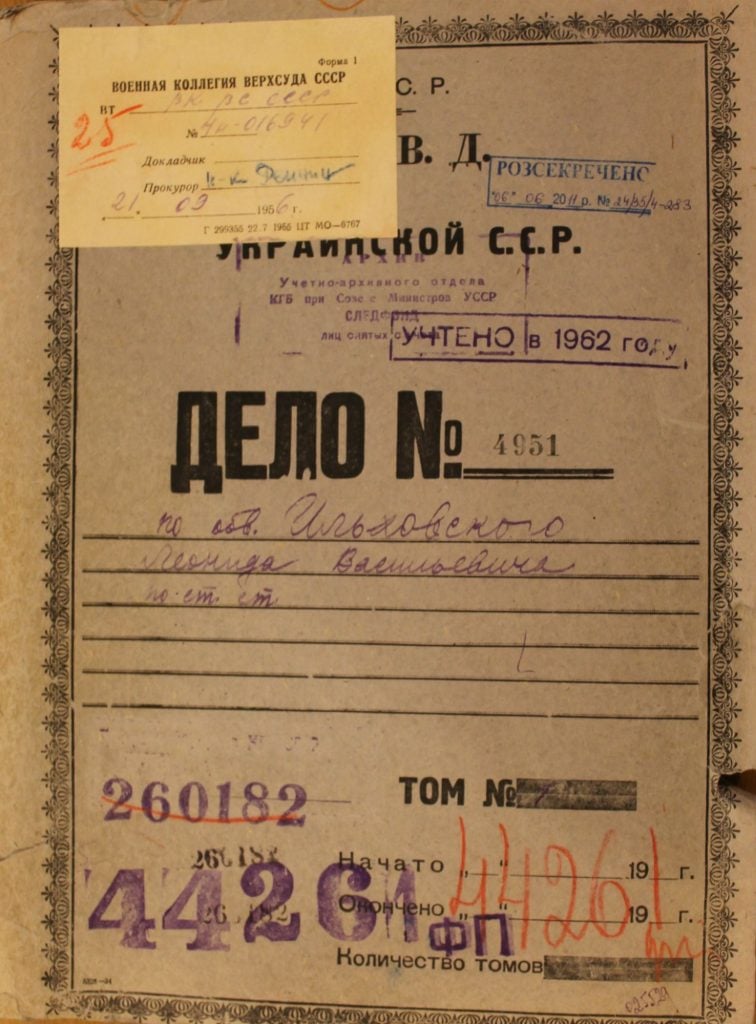 Форма 1
ВОЕННАЯ КОЛЛЕГИЯ ВЕРХСУДА СССР
ВТ
25
№ 4н-016941
Докладчик
Прокурор
21. 09 1956 г.
Г 299355 22.7 1955 ЦТ МО—6767
С. Р.
В. Д.
РОЗСЕКРЕЧЕНО
"06" 06 2011 р. № 24/35/4-283
УКРАИНСКОЙ С.С.Р.
АРХИВ
Учетно-архивного отдела
КГБ при Совете Министров УССР
СЛЕДФОНД
лиц снятых с
УЧТЕНО в 1962 году
ДЕЛО № 4951
по обв. Ильховского
Леонида Васильевича
по ст. ст.
260182
ТОМ № 1
260182
Начато „ “ 19 г.
44261
44261
260182
Окончено „ “ 19 г.
ФП
Количество томов
025529